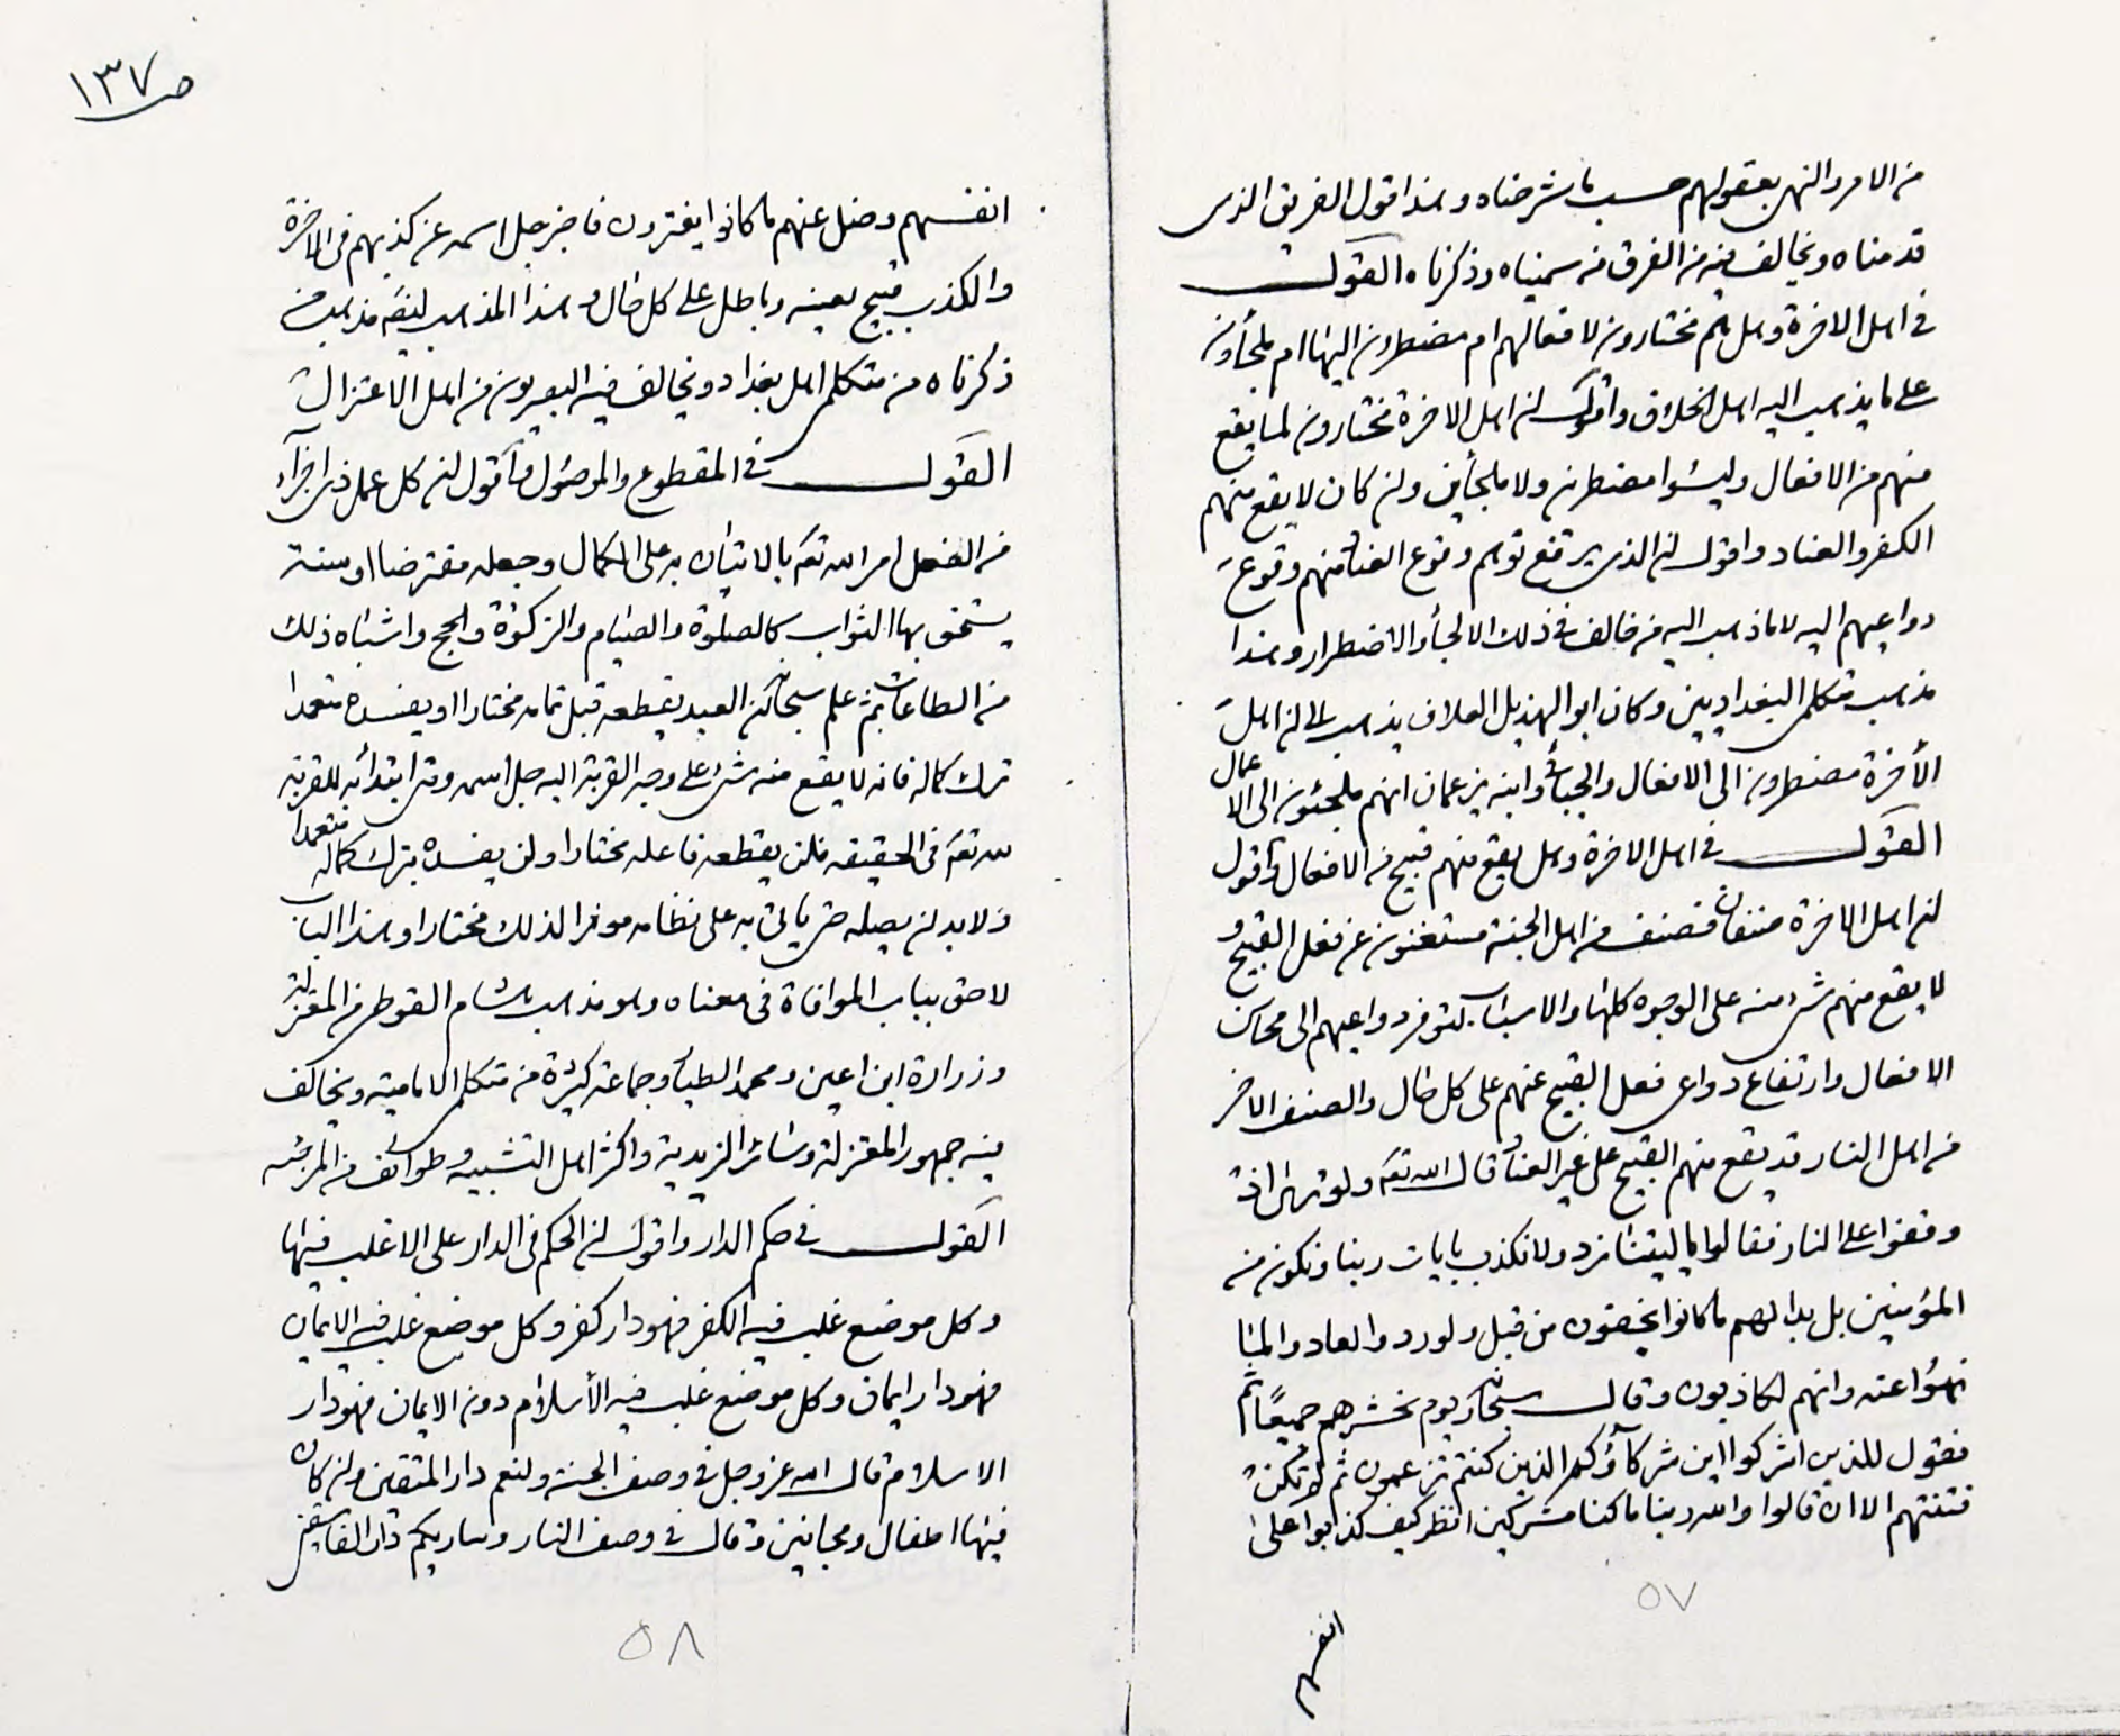 من الامر والنهى بعقولهم حسب ما شرحناه وهذا قول الفريق الذى
قدمناه ويخالف فيه من الفرق من سميناه وذكرناه القول
فى اهل الاخرة وهل هم مختارون لافعالهم ام مضطرون اليها ام ملجأون
على ما يذهب اليه اهل الخلاف واقول ان اهل الاخرة مختارون لما يقع
منهم من الافعال وليسوا مضطرين ولا ملجأين وان كان لا يقع منهم
الكفر والعناد واقول ان الذى يرفع توهم وقوع الفساد منهم وقوع
دواعيهم اليه لا ما ذهب اليه من خالف فى ذلك الالجأ والاضطرار وهذا
مذهب متكلمى البغداديين وكان ابو الهذيل العلاف يذهب الى ان اهل
الأخرة مضطرون الى الافعال والجبائى وابنه يزعمان انهم ملجئون الى الاعمال
القول فى اهل الاخرة وهل يقع منهم قبيح من الافعال واقول
ان اهل الاخرة صنفان فصنف من اهل الجنة مستغنون عن فعل القبيح و
لا يقع منهم شىء منه على الوجوه كلها والاسباب لتوفر دواعيهم الى محاسن
الافعال وارتفاع دواعى فعل القبيح عنهم على كل حال والصنف الاخر
من اهل النار قد يقع منهم القبيح على غير العناد قال الله تعه ولو ترى اذ
وقفوا على النار فقالوا يا ليتنا نرد ولا نكذب بايات ربنا ونكون من
المؤمنين بل بدا لهم ما كانوا يخفون من قبل ولو ردوا لعادوا لما
نهوا عنه وانهم لكاذبون وقال سبحانه ويوم نحشرهم جميعًا ثم
نقول للذين اشركوا اين شركآؤكم الذين كنتم تزعمون ثم لم تكن
فتنتهم الا ان قالوا والله ربنا ما كنا مشركين انظر كيف كذبوا على
٥٧
انفسهم
ص ١٣٧
انفسهم وضل عنهم ما كانوا يفترون فاخبر جل اسمه عن كذبهم فى الاخرة
والكذب قبيح بعينه وباطل على كل حال وهذا المذهب ايضه مذهب من
ذكرناه من متكلمى اهل بغداد ويخالف فيه البصريون من اهل الاعتزال
القول فى المقطوع والموصول واقول ان كل عمل ذى اجزآء
من الفعل امر الله تعه بالاتيان به على الكمال وجعله مفترضا او سنة
يستحق بها الثواب كالصلوة والصيام والزكوة والحج واشباه ذلك
من الطاعات ثم علم سبحانه ان العبد يقطعه قبل تمامه مختارا او يفسده متعمدا
ترك كماله فانه لا يقع منه شئ على وجه القربة اليه جل اسمه ومتى ابتدأ به للقربة
لله تعه فى الحقيقة فلن يقطعه فاعله مختارا ولن يفسده بترك كماله متعمدا
ولابد ان يصله حتى يأتى به على نظامه موفرا لذلك مختارا وهذا الباب
لاحق بباب الموافاة فى معناه وهو مذهب هشام الفوطى من المعتزلة
وزرارة ابن اعين ومحمد الطيار وجماعة كثيرة من متكلمى الامامية ويخالف
فيه جمهور المعتزلة وسائر الزيدية واكثر اهل التشبيه وطوائف من المرجئه
القول فى حكم الدار واقول ان الحكم فى الدار على الاغلب فيها
وكل موضع غلب فيه الكفر فهو دار كفر وكل موضع غلب فيه الايمان
فهو دار ايمان وكل موضع غلب فيه الأسلام دون الايمان فهو دار
الاسلام قال الله عز وجل فى وصف الجنة ولنعم دار المتقين وان كان
فيها اطفال ومجانين وقال فى وصف النار وساريكم دار الفاسقين
٥٨